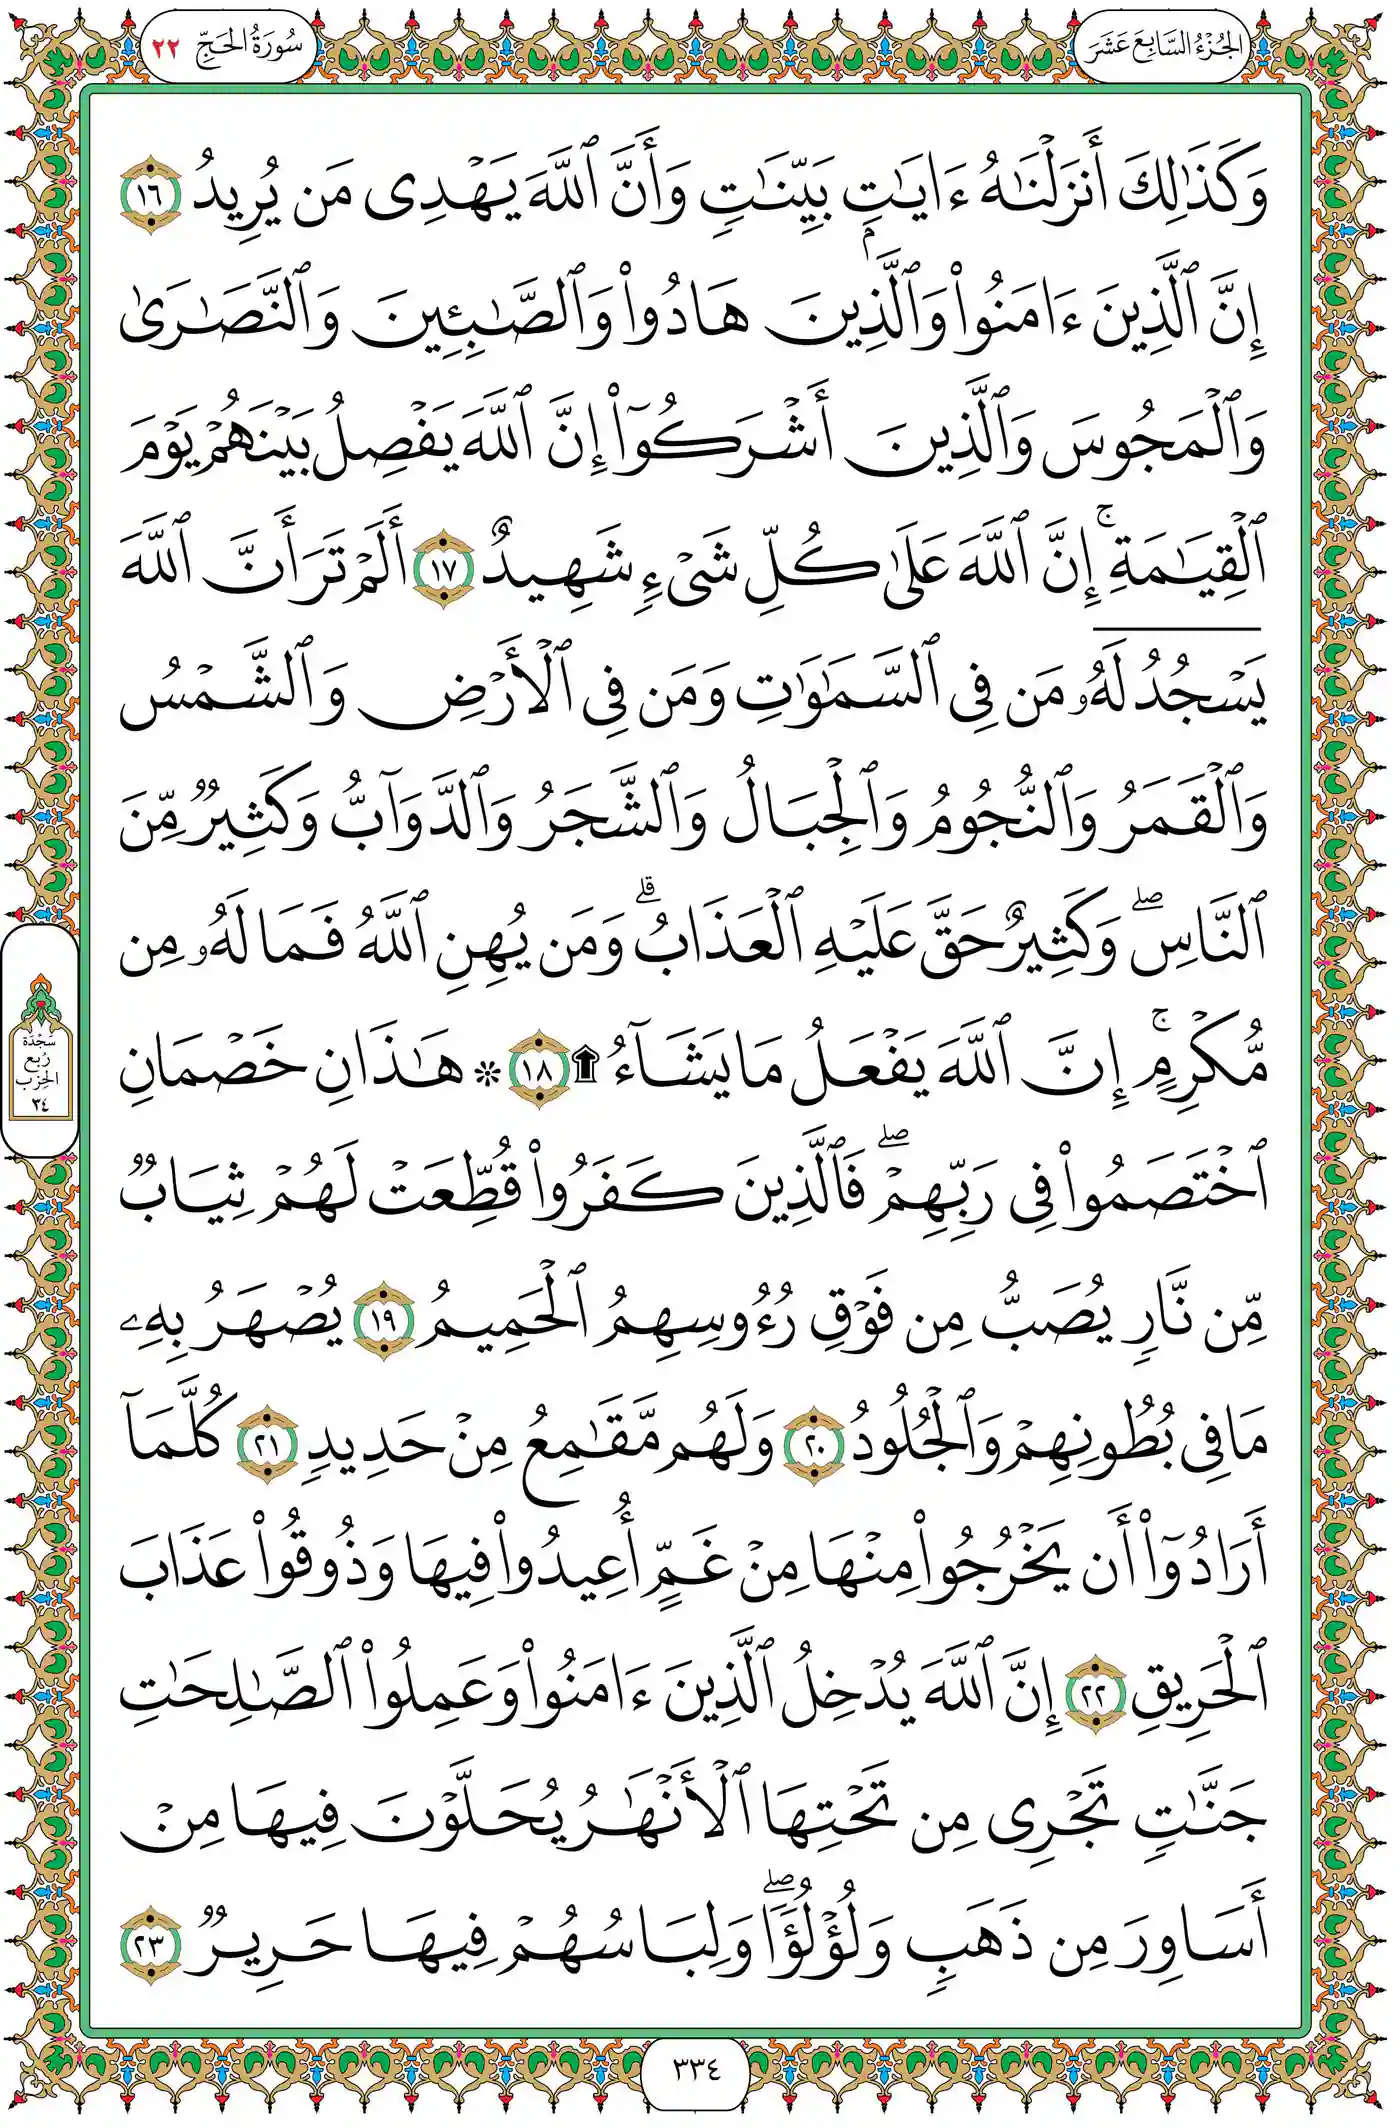 الجُزْءُ السَّابِعَ عَشَرَ
سُورَةُ الحَجّ ٢٢
وَكَذَٰلِكَ أَنزَلْنَٰهُ ءَايَٰتٍۭ بَيِّنَٰتٍ وَأَنَّ ٱللَّهَ يَهْدِى مَن يُرِيدُ ١٦
إِنَّ ٱلَّذِينَ ءَامَنُوا۟ وَٱلَّذِينَ هَادُوا۟ وَٱلصَّٰبِـِٔينَ وَٱلنَّصَٰرَىٰ
وَٱلْمَجُوسَ وَٱلَّذِينَ أَشْرَكُوٓا۟ إِنَّ ٱللَّهَ يَفْصِلُ بَيْنَهُمْ يَوْمَ
ٱلْقِيَٰمَةِ ۚ إِنَّ ٱللَّهَ عَلَىٰ كُلِّ شَىْءٍ شَهِيدٌ ١٧ أَلَمْ تَرَ أَنَّ ٱللَّهَ
يَسْجُدُ لَهُۥ مَن فِى ٱلسَّمَٰوَٰتِ وَمَن فِى ٱلْأَرْضِ وَٱلشَّمْسُ
وَٱلْقَمَرُ وَٱلنُّجُومُ وَٱلْجِبَالُ وَٱلشَّجَرُ وَٱلدَّوَآبُّ وَكَثِيرٌ مِّنَ
ٱلنَّاسِ ۖ وَكَثِيرٌ حَقَّ عَلَيْهِ ٱلْعَذَابُ ۗ وَمَن يُهِنِ ٱللَّهُ فَمَا لَهُۥ مِن
مُّكْرِمٍ ۚ إِنَّ ٱللَّهَ يَفْعَلُ مَا يَشَآءُ ۩ ١٨ ۞ هَٰذَانِ خَصْمَانِ
ٱخْتَصَمُوا۟ فِى رَبِّهِمْ ۖ فَٱلَّذِينَ كَفَرُوا۟ قُطِّعَتْ لَهُمْ ثِيَابٌ
مِّن نَّارٍ يُصَبُّ مِن فَوْقِ رُءُوسِهِمُ ٱلْحَمِيمُ ١٩ يُصْهَرُ بِهِۦ
مَا فِى بُطُونِهِمْ وَٱلْجُلُودُ ٢٠ وَلَهُم مَّقَٰمِعُ مِنْ حَدِيدٍ ٢١ كُلَّمَآ
أَرَادُوٓا۟ أَن يَخْرُجُوا۟ مِنْهَا مِنْ غَمٍّ أُعِيدُوا۟ فِيهَا وَذُوقُوا۟ عَذَابَ
ٱلْحَرِيقِ ٢٢ إِنَّ ٱللَّهَ يُدْخِلُ ٱلَّذِينَ ءَامَنُوا۟ وَعَمِلُوا۟ ٱلصَّٰلِحَٰتِ
جَنَّٰتٍ تَجْرِى مِن تَحْتِهَا ٱلْأَنْهَٰرُ يُحَلَّوْنَ فِيهَا مِنْ
أَسَاوِرَ مِن ذَهَبٍ وَلُؤْلُؤًا ۖ وَلِبَاسُهُمْ فِيهَا حَرِيرٌ ٢٣
سَجْدَة
رُبع
الحِزْب
٣٤
٣٣٤